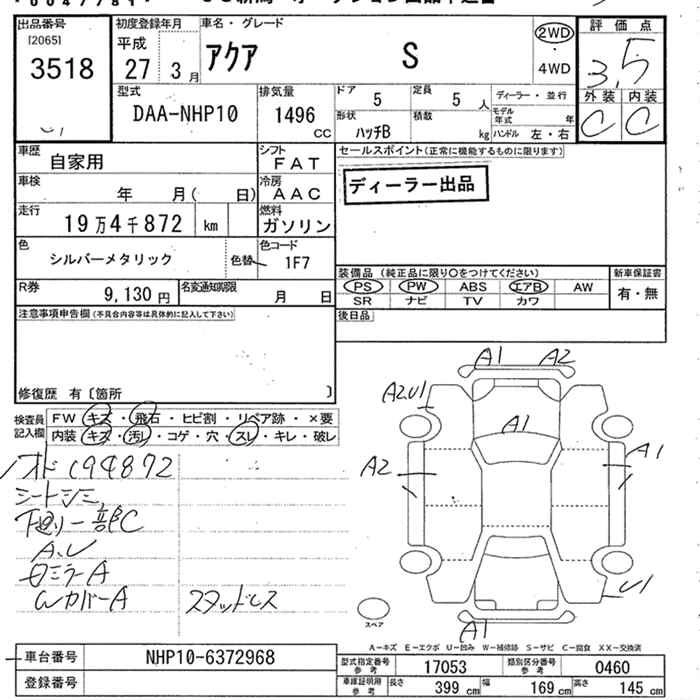 出品番号 初度登録年月 車名・グレード 評価点
[2065] 平成 アクア S 2WD 3.5
3518 27 3月 4WD 外装 内装
型式 排気量 ドア 5 定員 5人 ディーラー・並行 C C
DAA-NHP10 1496 CC 形状 ハッチB 積載 kg モデル年式 年
ハンドル 左・右
車歴 自家用 シフト FAT セールスポイント(正常に機能するものに限ります)
車検 年 月( 日) 冷房 AAC ディーラー出品
走行 19万4千872 km 燃料 ガソリン
色 シルバーメタリック 色替 色コード 1F7
装備品(純正品に限り○をつけてください) 新車保証書
R券 9,130円 名変通知期限 月 日 PS PW ABS エアB AW 有・無
SR ナビ TV カワ
注意事項申告欄(不具合内容等は具体的に記入して下さい) 後日品
修復歴 有〔箇所 〕
A1 A2
A2U1
A1
A2 A1
U1
A1
スペア
検査員記入欄 FW キズ・飛石・ヒビ割・リペア跡・×要
内装 キズ・汚れ・コゲ・穴・スレ・キレ・破レ
194872
シートシミ
下廻り一部C
A.U
ミラーA
WカバーA スタッドレス
A-キズ E-エクボ U-凹み W-補修跡 S-サビ C-腐食 XX-交換済
車台番号 NHP10-6372968 型式指定番号参考 17053 類別区分番号参考 0460
登録番号 車庫証明用参考 長さ 399cm 幅 169cm 高さ 145cm